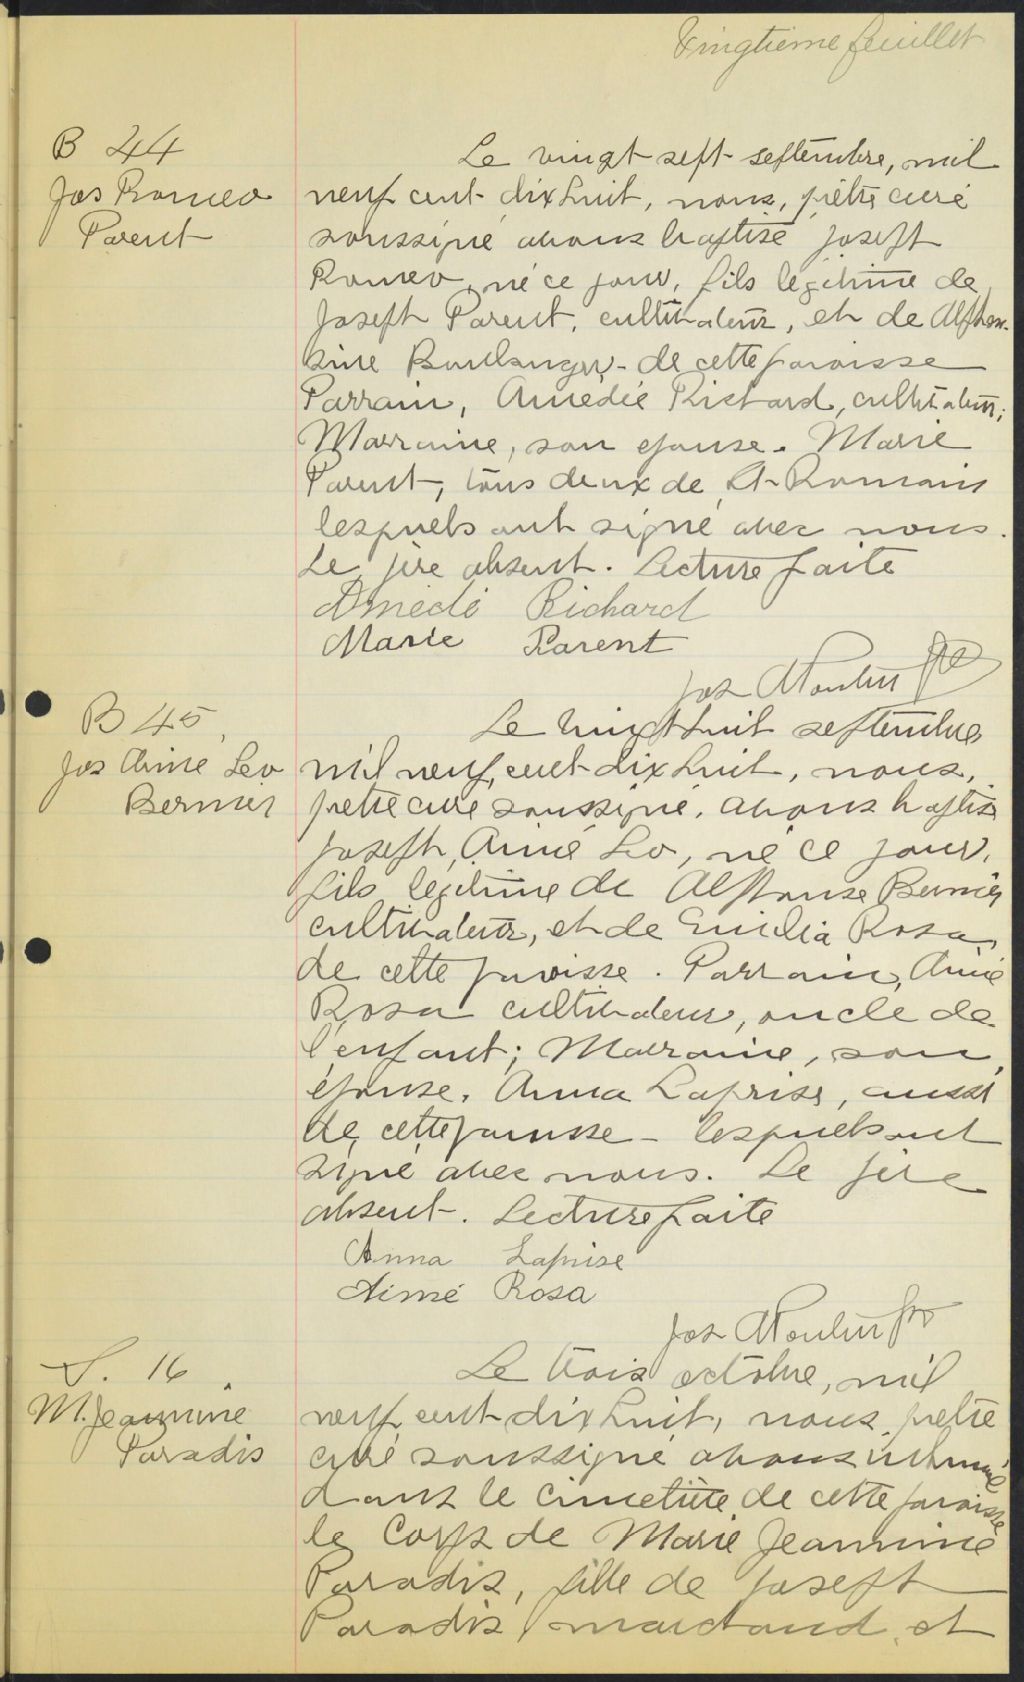 Vingtième feuillet
B 44
Jos Romeo
Parent
Le vingt sept septembre, mil
neuf cent dix huit, nous, prêtre curé
soussigné avons baptisé Joseph
Romeo, né ce jour, fils légitime de
Joseph Parent, cultivateur, et de Alphon-
sine Boulanger - de cette paroisse
Parrain, Amédée Richard, cultivateur;
Marraine, son épouse. Marie
Parent, tous deux de St Romain
lesquels ont signé avec nous.
Le père absent. Lecture faite
Amédé Richard
Marie Parent
Jos A Poulin Ptre
B 45
Jos Aimé Leo
Bernier
Le vingt huit septembre
mil neuf cent dix huit, nous,
prêtre curé soussigné, avons baptisé
Joseph, Aimé Leo, né ce jour,
fils légitime de Alphonse Bernier
cultivateur, et de Emilia Rosa,
de cette paroisse. Parrain, Aimé
Rosa cultivateur, oncle de
l'enfant; Marraine, son
épouse. Anna Laprise, aussi
de cette paroisse - lesquels ont
signé avec nous. Le père
absent. Lecture faite
Anna Laprise
Aimé Rosa
Jos A Poulin Ptre
S. 16
M. Jeannine
Paradis
Le trois octobre, mil
neuf cent dix huit, nous prêtre
curé soussigné avons inhumé
dans le cimetière de cette paroisse
le corps de Marie Jeannine
Paradis, fille de Joseph
Paradis marchand et